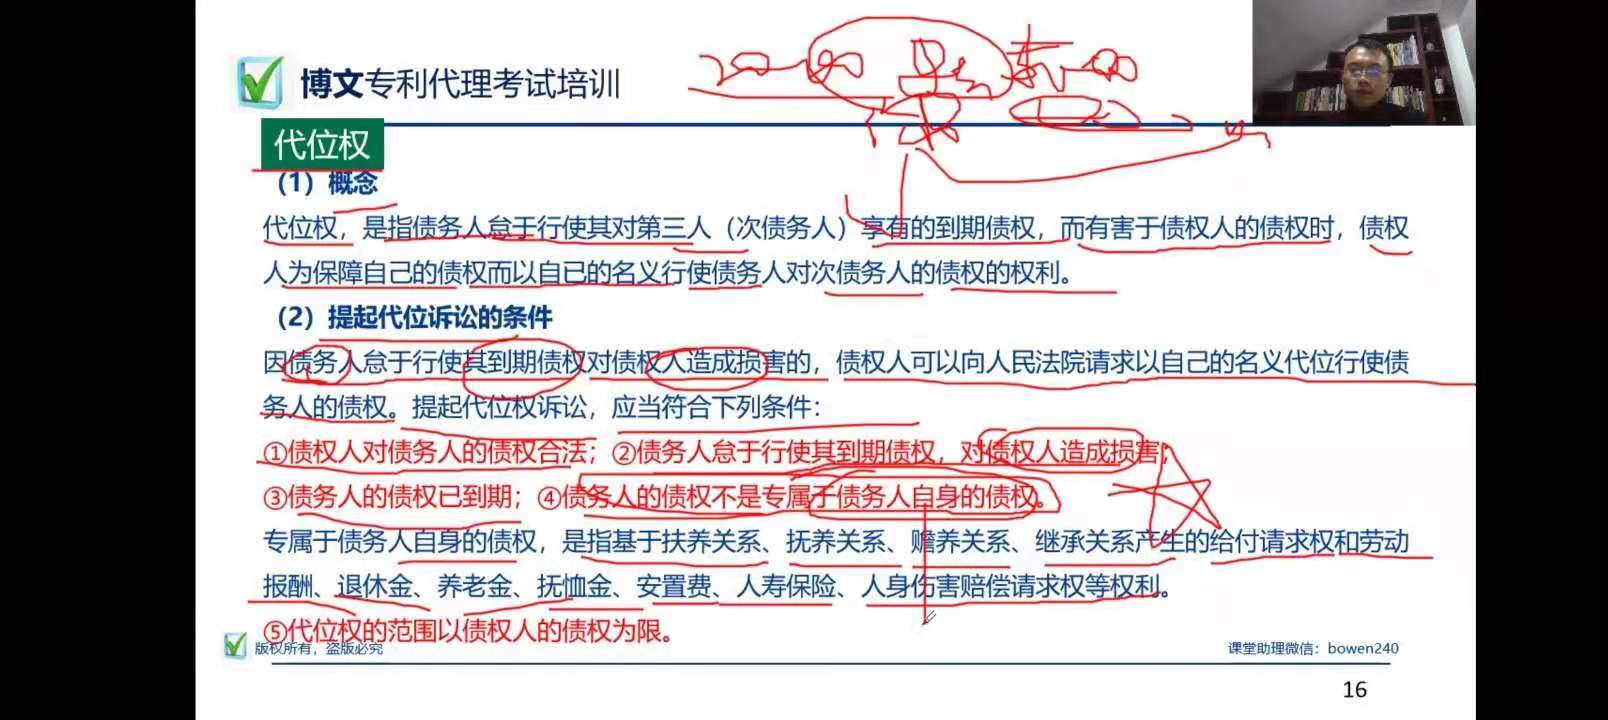 博文专利代理考试培训
代位权
（1）概念
代位权，是指债务人怠于行使其对第三人（次债务人）享有的到期债权，而有害于债权人的债权时，债权
人为保障自己的债权而以自已的名义行使债务人对次债务人的债权的权利。
（2）提起代位诉讼的条件
因债务人怠于行使其到期债权对债权人造成损害的，债权人可以向人民法院请求以自己的名义代位行使债
务人的债权。提起代位权诉讼，应当符合下列条件：
①债权人对债务人的债权合法；②债务人怠于行使其到期债权，对债权人造成损害；
③债务人的债权已到期；④债务人的债权不是专属于债务人自身的债权。
专属于债务人自身的债权，是指基于扶养关系、抚养关系、赡养关系、继承关系产生的给付请求权和劳动
报酬、退休金、养老金、抚恤金、安置费、人寿保险、人身伤害赔偿请求权等权利。
⑤代位权的范围以债权人的债权为限。
版权所有，盗版必究
课堂助理微信：bowen240
16